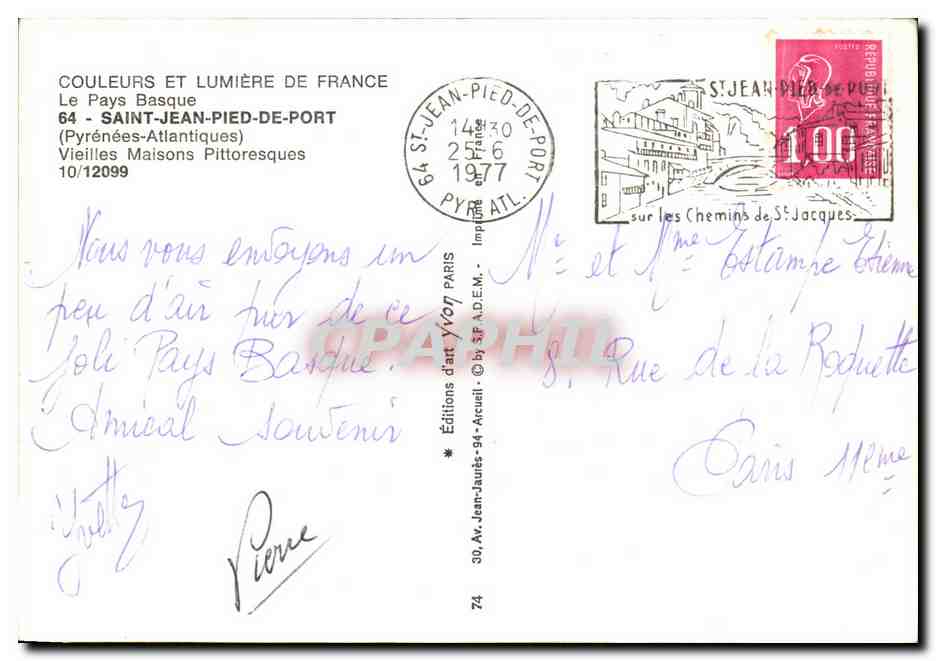 COULEURS ET LUMIÈRE DE FRANCE
Le Pays Basque
64 - SAINT-JEAN-PIED-DE-PORT
(Pyrénées-Atlantiques)
Vieilles Maisons Pittoresques
10/12099
Nous vous envoyons un
peu d'air pur de ce
joli Pays Basque.
Amical souvenir
Yvette
Pierre
64 ST-JEAN-PIED-DE-PORT
14 30
25-6
1977
PYR. ATL.
St JEAN-PIED-DE-PORT
sur les Chemins de St Jacques
POSTES
REPUBLIQUE FRANÇAISE
1,00
Mr et Mme Estampe Etienne
8, Rue de la Roquette
Paris 11ème
* Éditions d'art Yvon PARIS
74 30, Av. Jean-Jaurès - 94 - Arcueil - © by S.P.A.D.E.M. - Imprimé en France
CPAPHIL